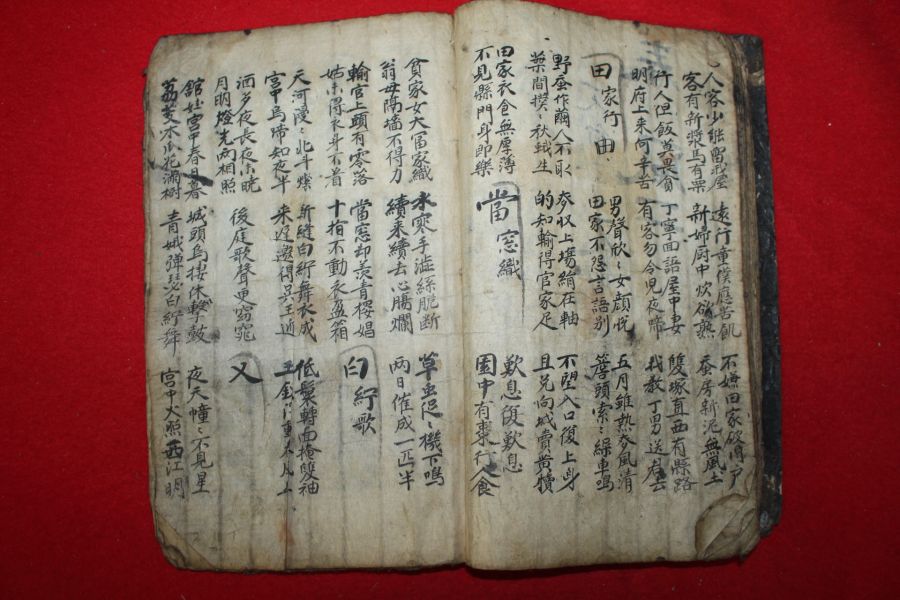 人客少能留我屋
客有新漿馬有粟
遠行童僕應苦飢
新婦厨中炊欲熟
不嫌田家破門戶
蚕房新泥無風土
行人但飯莫畏貧
明府上來何辛苦
丁寧面語屋中妻
有客勿令児夜啼
雙塚直西有縣路
我教丁男送君去
田家行 由
男聲欣〻女顔悅
田家不怨言語別
五月雖熱麥風清
簷頭索〻繰車鳴
野蚕作繭人不取
葉間撲〻秋蛾生
麥収上場絹在軸
的知輸得官家足
不望入口復上身
且免向城賣黃犢
田家衣食無厚薄
不見縣門身即樂
當窓織
歎息復歎息
園中有棗行人食
貧家女大冨家織
翁母隔墻不得力
水寒手澁絲脆斷
續來續去心膓爛
草虫促〻機下鳴
兩日催成一匹半
輸官上頭有零落
姑未得衣身不着
當窓却羨青樓娼
十指不動衣盈箱
白紵歌
天河漫〻北斗燦
宮中烏啼知夜半
新縫白紵舞衣成
來遲邀得吳王迎
低鬟轉面掩雙袖
洒夕夜長夜未曉
月明燈光兩相照
後庭歌聲更窈窕
又
館娃宮中春日暮
荔芰木瓜花滿樹
城頭烏棲休擊鼓
青娥彈瑟白紵舞
夜天幢〻不見星
宮中火照西江明